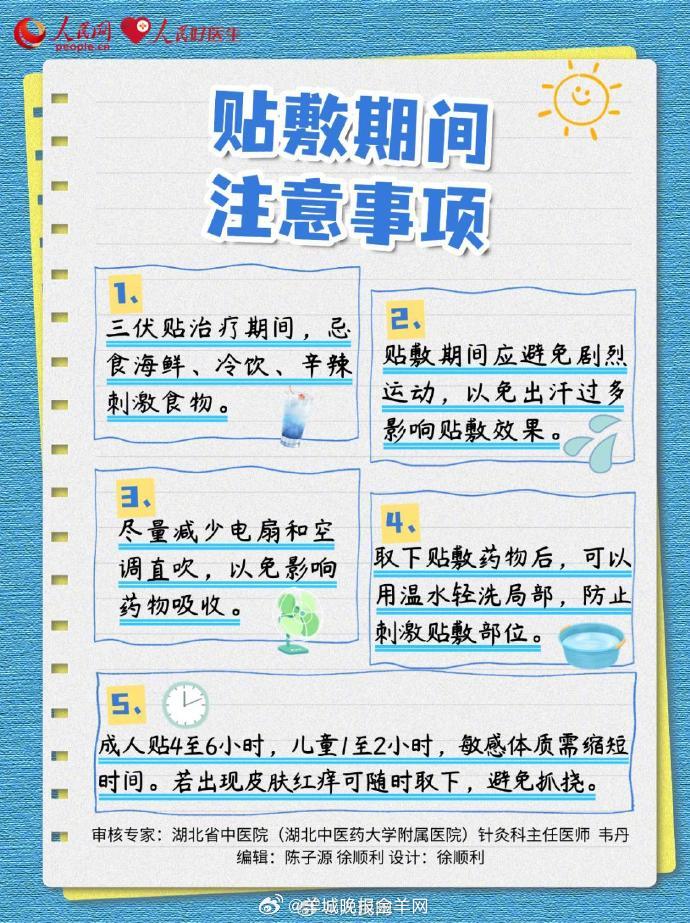 人民网
people.cn
人民好医生
贴敷期间
注意事项
1、
三伏贴治疗期间，忌
食海鲜、冷饮、辛辣
刺激食物。
2、
贴敷期间应避免剧烈
运动，以免出汗过多
影响贴敷效果。
3、
尽量减少电扇和空
调直吹，以免影响
药物吸收。
4、
取下贴敷药物后，可以
用温水轻洗局部，防止
刺激贴敷部位。
5、
成人贴4至6小时，儿童1至2小时，敏感体质需缩短
时间。若出现皮肤红痒可随时取下，避免抓挠。
审核专家：湖北省中医院（湖北中医药大学附属医院）针灸科主任医师 韦丹
编辑：陈子源 徐顺利 设计：徐顺利
@羊城晚报金羊网